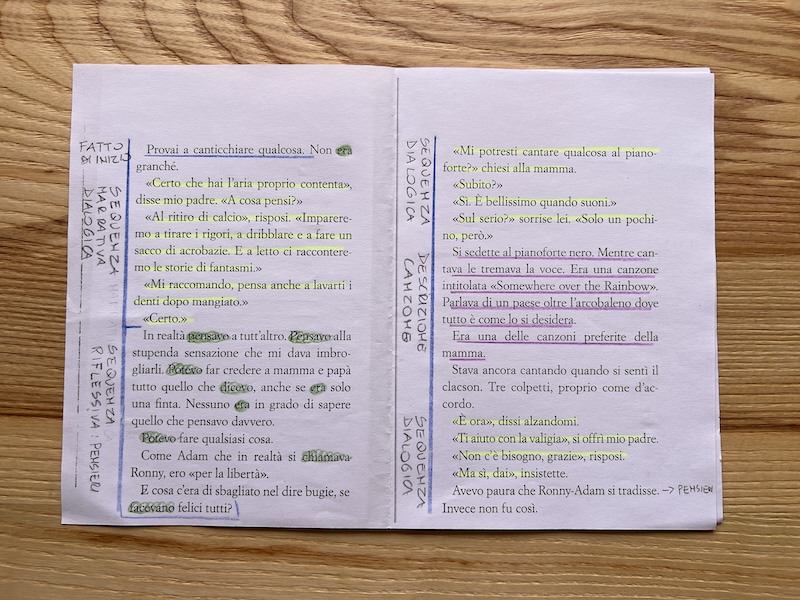 FATTO
DI INIZIO
SEQUENZA
NARRATIVA
DIALOGICA
SEQUENZA
RIFLESSIVA: PENSIERI
Provai a canticchiare qualcosa. Non era
granché.
«Certo che hai l'aria proprio contenta»,
disse mio padre. «A cosa pensi?»
«Al ritiro di calcio», risposi. «Imparere-
mo a tirare i rigori, a dribblare e a fare un
sacco di acrobazie. E a letto ci raccontere-
mo le storie di fantasmi.»
«Mi raccomando, pensa anche a lavarti i
denti dopo mangiato.»
«Certo.»
In realtà pensavo a tutt'altro. Pensavo alla
stupenda sensazione che mi dava imbro-
gliarli. Potevo far credere a mamma e papà
tutto quello che dicevo, anche se era solo
una finta. Nessuno era in grado di sapere
quello che pensavo davvero.
Potevo fare qualsiasi cosa.
Come Adam che in realtà si chiamava
Ronny, ero «per la libertà».
E cosa c'era di sbagliato nel dire bugie, se
facevano felici tutti?
SEQUENZA
DIALOGICA
DESCRIZIONE
CANZONE
SEQUENZA
DIALOGICA
«Mi potresti cantare qualcosa al piano-
forte?» chiesi alla mamma.
«Subito?»
«Sì. È bellissimo quando suoni.»
«Sul serio?» sorrise lei. «Solo un pochi-
no, però.»
Si sedette al pianoforte nero. Mentre can-
tava le tremava la voce. Era una canzone
intitolata «Somewhere over the Rainbow».
Parlava di un paese oltre l'arcobaleno dove
tutto è come lo si desidera.
Era una delle canzoni preferite della
mamma.
Stava ancora cantando quando si sentì il
clacson. Tre colpetti, proprio come d'ac-
cordo.
«È ora», dissi alzandomi.
«Ti aiuto con la valigia», si offrì mio padre.
«Non c'è bisogno, grazie», risposi.
«Ma sì, dai», insistette.
Avevo paura che Ronny-Adam si tradisse. → PENSIERI
Invece non fu così.